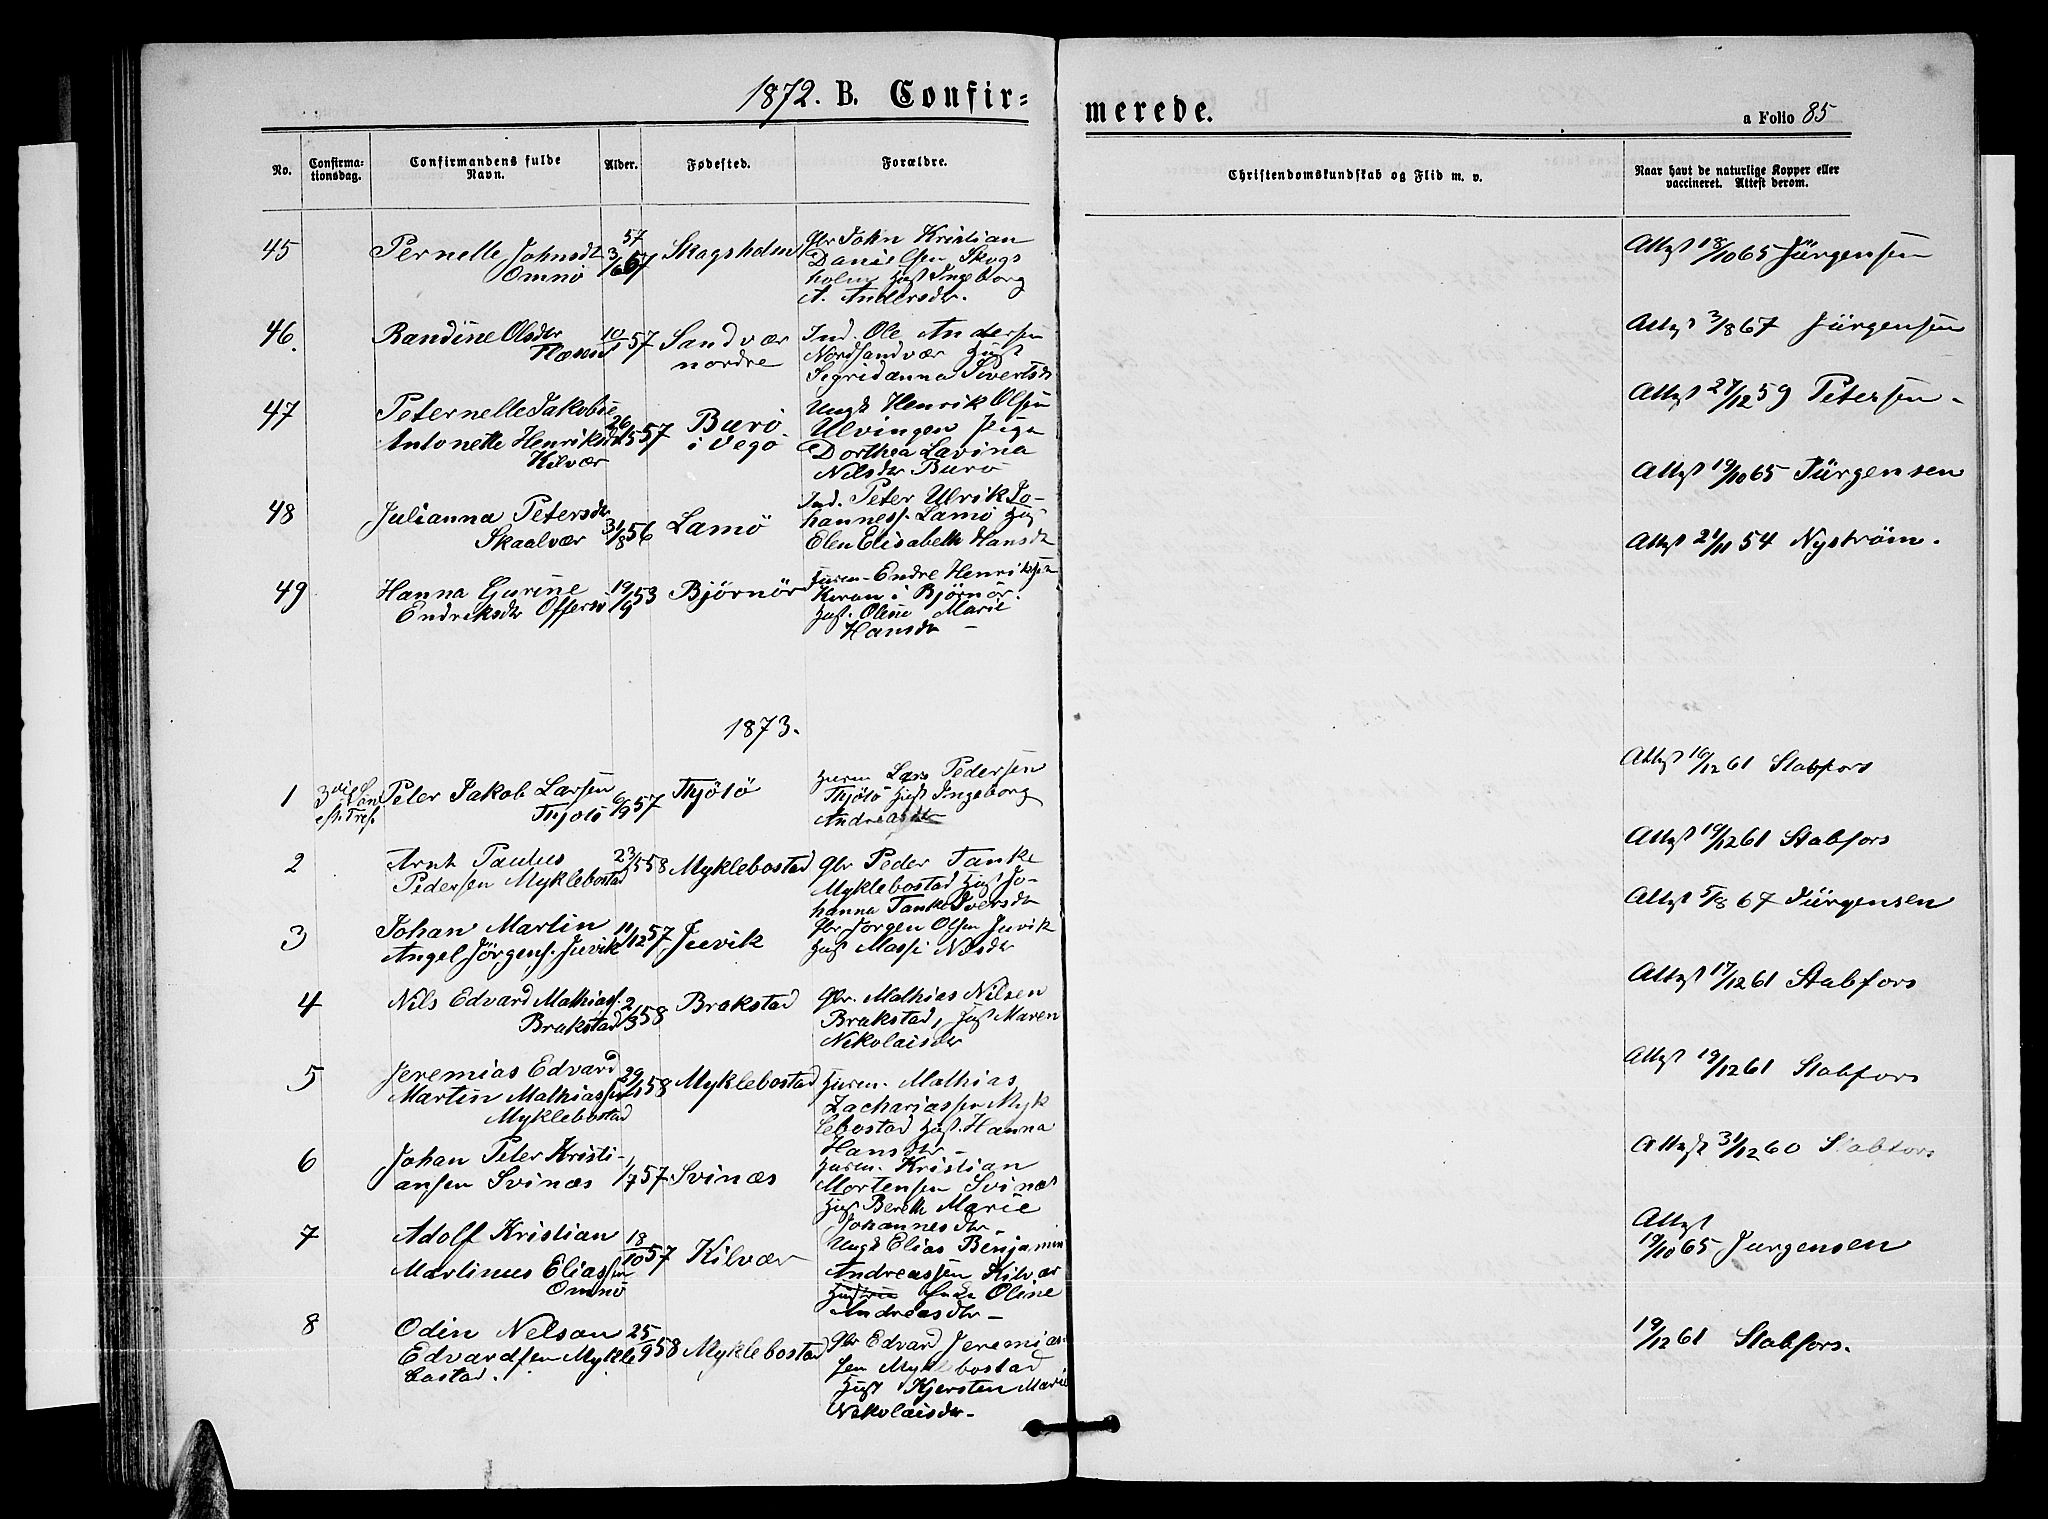 1872. B. Confir=
merede.
a Folio 85
No.
Confirma-
tionsdag.
Confirmandens fulde
Navn.
Alder.
Fødested.
Forældre.
Christendomskundskab og Flid m. v.
Naar havt de naturlige Kopper eller
vaccineret. Attest derom.
45
Pernelle Johnsdt
Omnø
57
3/6 67
Skogsholm
Gbr John Kristian
Danielsen Skogs
holm Hust Ingeborg
A. Andersdtr.
Attest 18/10 65 Jürgensen
46.
Randine Olsdtr
Flæsen
10/1 57
Sandvær
nordre
Ind. Ole Andersen
Nordsandvær Hust
Sigridanna Sivertsdt
Attest 3/8 67 Jürgensen
47
Peternelle Jakobie
Antonette Henriksdt
Kilvær
26/5 57
Burö
i Vegö
Ungk Henrik Olsen
Ulvingen Pige
Dorthea Lavina
Nilsdtr Burö
Attest 27/12 59 Petersen -
48
Julianna Petersdtr
Skaalvær
31/8 56
Lamö
Ind. Peter Ulrik Jo-
hanness. Lamö Hust
Elen Elisabeth Hansdt
Attest 19/10 65 Jürgensen
49
Hanna Gurine
Endreksdtr Offersö
19/9 53
Bjørnør
Husm- Endre Henriksen
i Bjørnør.
Hust. Oline Marie
Hansdtr -
Attest 21/11 54 Nyström.
1873.
1
3die S
eft. Tref.
Peter Jakob Larsen
Thjötö
6/9 57
Thjötö
Husm Lars Pedersen
Thjötö Hust Ingeborg
Andreasdtr
Attest 16/12 61 Stabfors
2
Arnt Paulus
Pedersen Myklebostad
23/5 58
Myklebostad
Gbr Peder Tanke
Myklebostad Hust Jo-
hanna Tanke Iversdt
Attest 19/12 61 Stabfors
3
Johan Martin
Angel Jörgens. Juvik
11/12 57
Juvik
Gbr Jörgen Olsen Juvik
Hust Massi Nilsdtr
Attest 5/8 67 Jürgensen
4
Nils Edvard Mathiass.
Brakstad
2/3 58
Brakstad
Gbr. Mathias Nilsen
Brakstad, Hust Maren
Nikolaisdtr
Attest 17/12 61 Stabfors
5
Jeremias Edvard
Martin Mathiassen
Myklebostad
58
Myklebostad
Husm. Mathias
Zachariassen Myk
lebostad Hust. Hanna
Hansdtr -
Attest 19/12 61 Stabfors
6
Johan Peter Kristi-
ansen Svinæs
1/7 57
Svinæs
Husm. Kristian
Mortensen Svinæs
Hust Bereth Marie
Johannesdtr -
Attest 31/12 60 Stabfors
7
Adolf Kristian
Martinus Eliassen
Omnø
18/10 57
Kilvær
Ungk Elias Benjamin
Andreassen Kilvær
Oline
Andreasdtr -
Attest
19/10 65 Jurgensen
8
Odin Nelson
Edvardsen Mykle
bostad.
25/9 58
Myklebostad
Gbr Edvard Jeremias-
sen Myklebostad
Hust Kjersten Marie
Nikolaisdtr -
19/12 61 Stabfors.